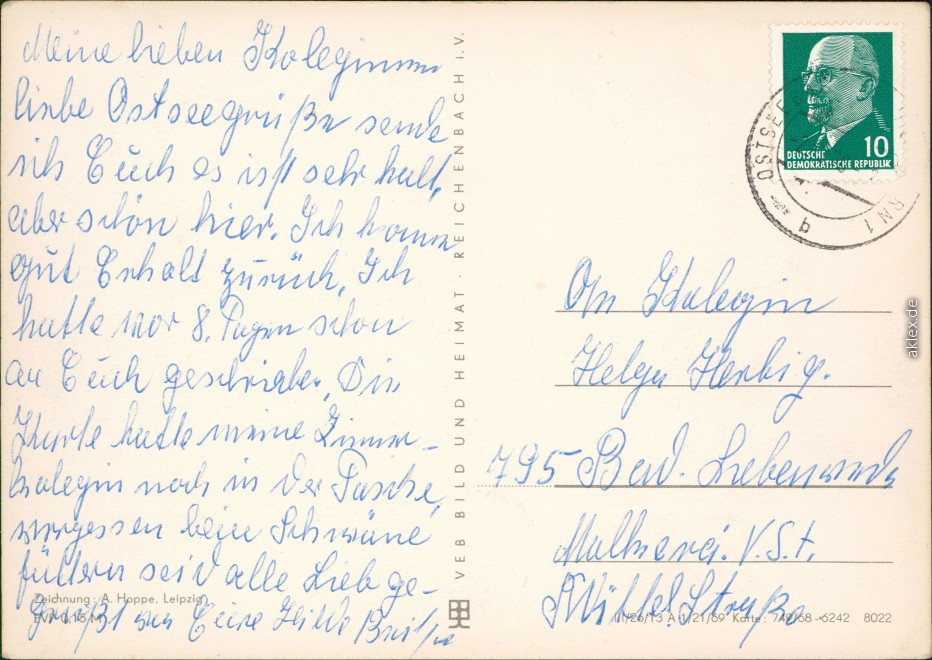 Meine lieben Koleginnen
liebe Ostseegrüße sende
ich Euch es ist sehr kalt,
aber schön hier. Ich komme
gut Erholt zurück, Ich
hatte vor 8. Tagen schon
an Euch geschrieben, Die
Karte hatte meine Zimmer-
kolegin noch in der Tasche,
vergessen beim Schwäne
füttern seid alle Lieb ge-
grüßt von Eure Hilde
Zeichnung: A. Hoppe, Leipzig
EVP 0,15 M
VEB BILD UND HEIMAT · REICHENBACH i. V.
DEUTSCHE
DEMOKRATISCHE REPUBLIK
10
OSTSEE
RN 1
q
An Kolegin
Helga Herbig.
795 Bad. Liebenwerda
Molkerei. V.S.t.
Mittel. Straße
III/26/13 A 1/21/69 Karte: 749/68 6242 8022
aklex.de